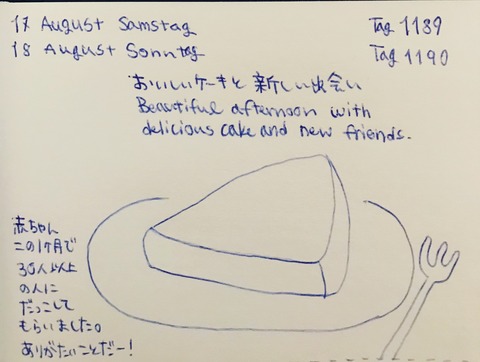 17 August Samstag
Tag 1189
18 August Sonntag
Tag 1190
おいしいケーキと新しい出会い
Beautiful afternoon with
delicious cake and new friends.
赤ちゃん
この1ヶ月で
30人以上
の人に
だっこして
もらいました。
ありがたいことだー!